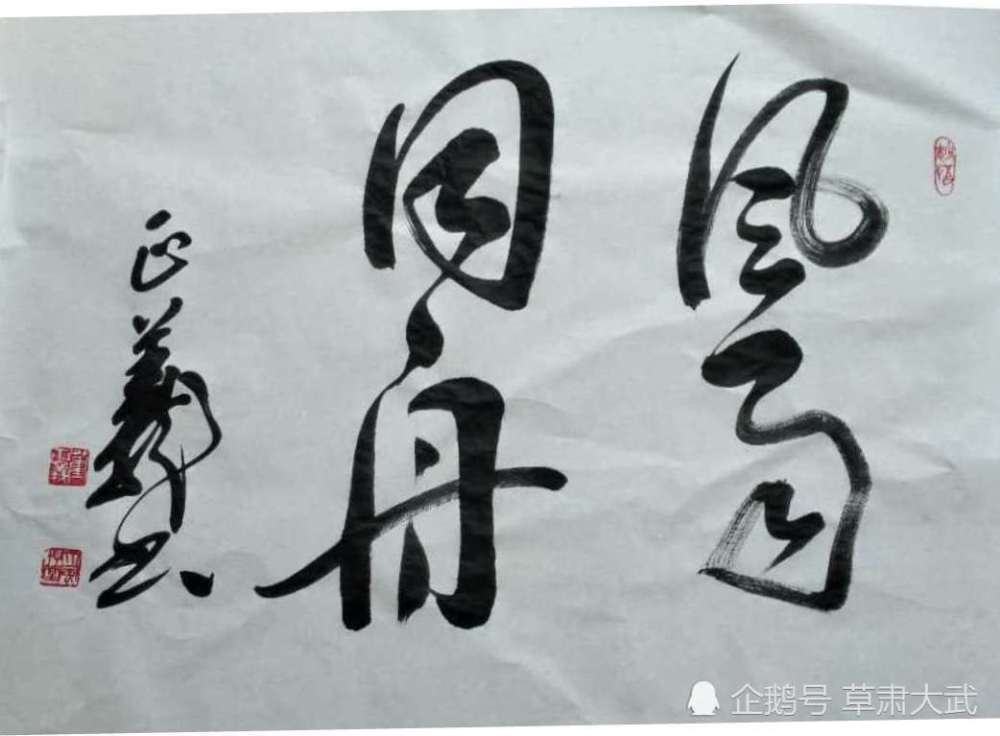 風雨
同舟
正義书
企鹅号 草肃大武